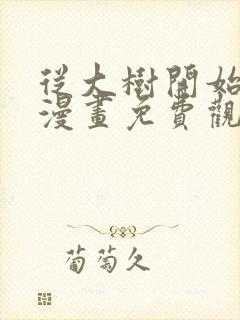 從大樹開始
漫畫免費觀
葡萄久